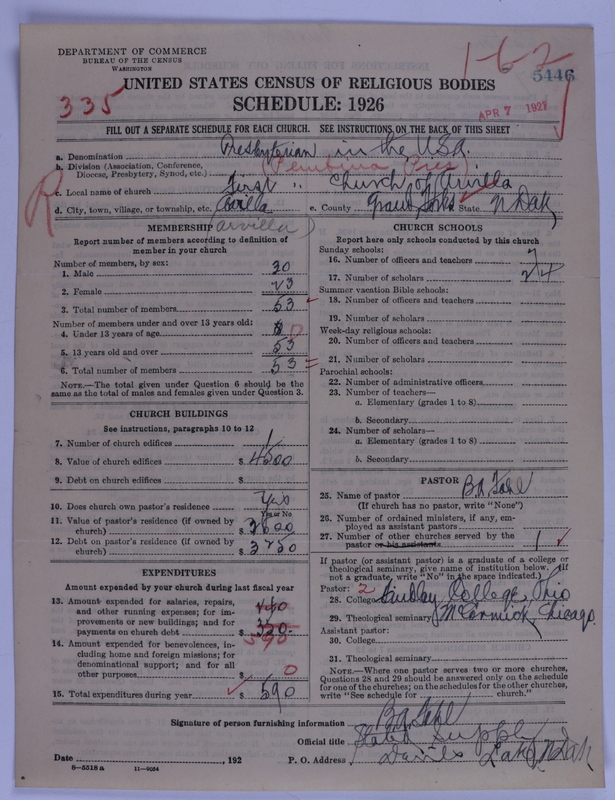 DEPARTMENT OF COMMERCE
BUREAU OF THE CENSUS
WASHINGTON
1-62
5446
UNITED STATES CENSUS OF RELIGIOUS BODIES
335
SCHEDULE: 1926
APR 7 1927
FILL OUT A SEPARATE SCHEDULE FOR EACH CHURCH. SEE INSTRUCTIONS ON THE BACK OF THIS SHEET
a. Denomination Presbyterian in the U.S.A.
b. Division (Association, Conference, Diocese, Presbytery, Synod, etc.) (Pembina Pres)
c. Local name of church First " Church of Arvilla
d. City, town, village, or township, etc. Arvilla e. County Grand Forks State N Dak
(Arvilla)
MEMBERSHIP
Report number of members according to definition of
member in your church
Number of members, by sex:
1. Male 30
2. Female 23
3. Total number of members 53
Number of members under and over 13 years old:
4. Under 13 years of age 0
5. 13 years old and over 53
6. Total number of members 53
NOTE.—The total given under Question 6 should be the
same as the total of males and females given under Question 3.
CHURCH BUILDINGS
See instructions, paragraphs 10 to 12
7. Number of church edifices 1
8. Value of church edifices $ 4500
9. Debt on church edifices $
10. Does church own pastor's residence Yes
Yes or No
11. Value of pastor's residence (if owned by
church) $ 3600
12. Debt on pastor's residence (if owned by
church) $ 3750
EXPENDITURES
Amount expended by your church during last fiscal year
13. Amount expended for salaries, repairs,
and other running expenses; for im-
provements or new buildings; and for
payments on church debt $ 590
14. Amount expended for benevolences, in-
cluding home and foreign missions; for
denominational support; and for all
other purposes $ 0
15. Total expenditures during year $ 590
CHURCH SCHOOLS
Report here only schools conducted by this church
Sunday schools:
16. Number of officers and teachers 7
17. Number of scholars 24
Summer vacation Bible schools:
18. Number of officers and teachers
19. Number of scholars
Week-day religious schools:
20. Number of officers and teachers
21. Number of scholars
Parochial schools:
22. Number of administrative officers
23. Number of teachers—
a. Elementary (grades 1 to 8)
b. Secondary
24. Number of scholars—
a. Elementary (grades 1 to 8)
b. Secondary
PASTOR
25. Name of pastor B.A. Fahl
(If church has no pastor, write "None")
26. Number of ordained ministers, if any, em-
ployed as assistant pastors
27. Number of other churches served by the
pastor or his assistants 1
If pastor (or assistant pastor) is a graduate of a college or
theological seminary, give name of institution below. (If
not a graduate, write "No" in the space indicated.)
Pastor: 2
28. College Findlay College, Ohio
29. Theological seminary McCormick, Chicago
Assistant pastor:
30. College
31. Theological seminary
NOTE.—Where one pastor serves two or more churches,
Questions 28 and 29 should be answered only on the schedule
for one of the churches; on the schedules for the other churches,
write "See schedule for church."
Signature of person furnishing information B.A. Fahl
Official title Stated Supply
Date , 192 P. O. Address Devils Lake, N Dak
8—5518 a 11—9034